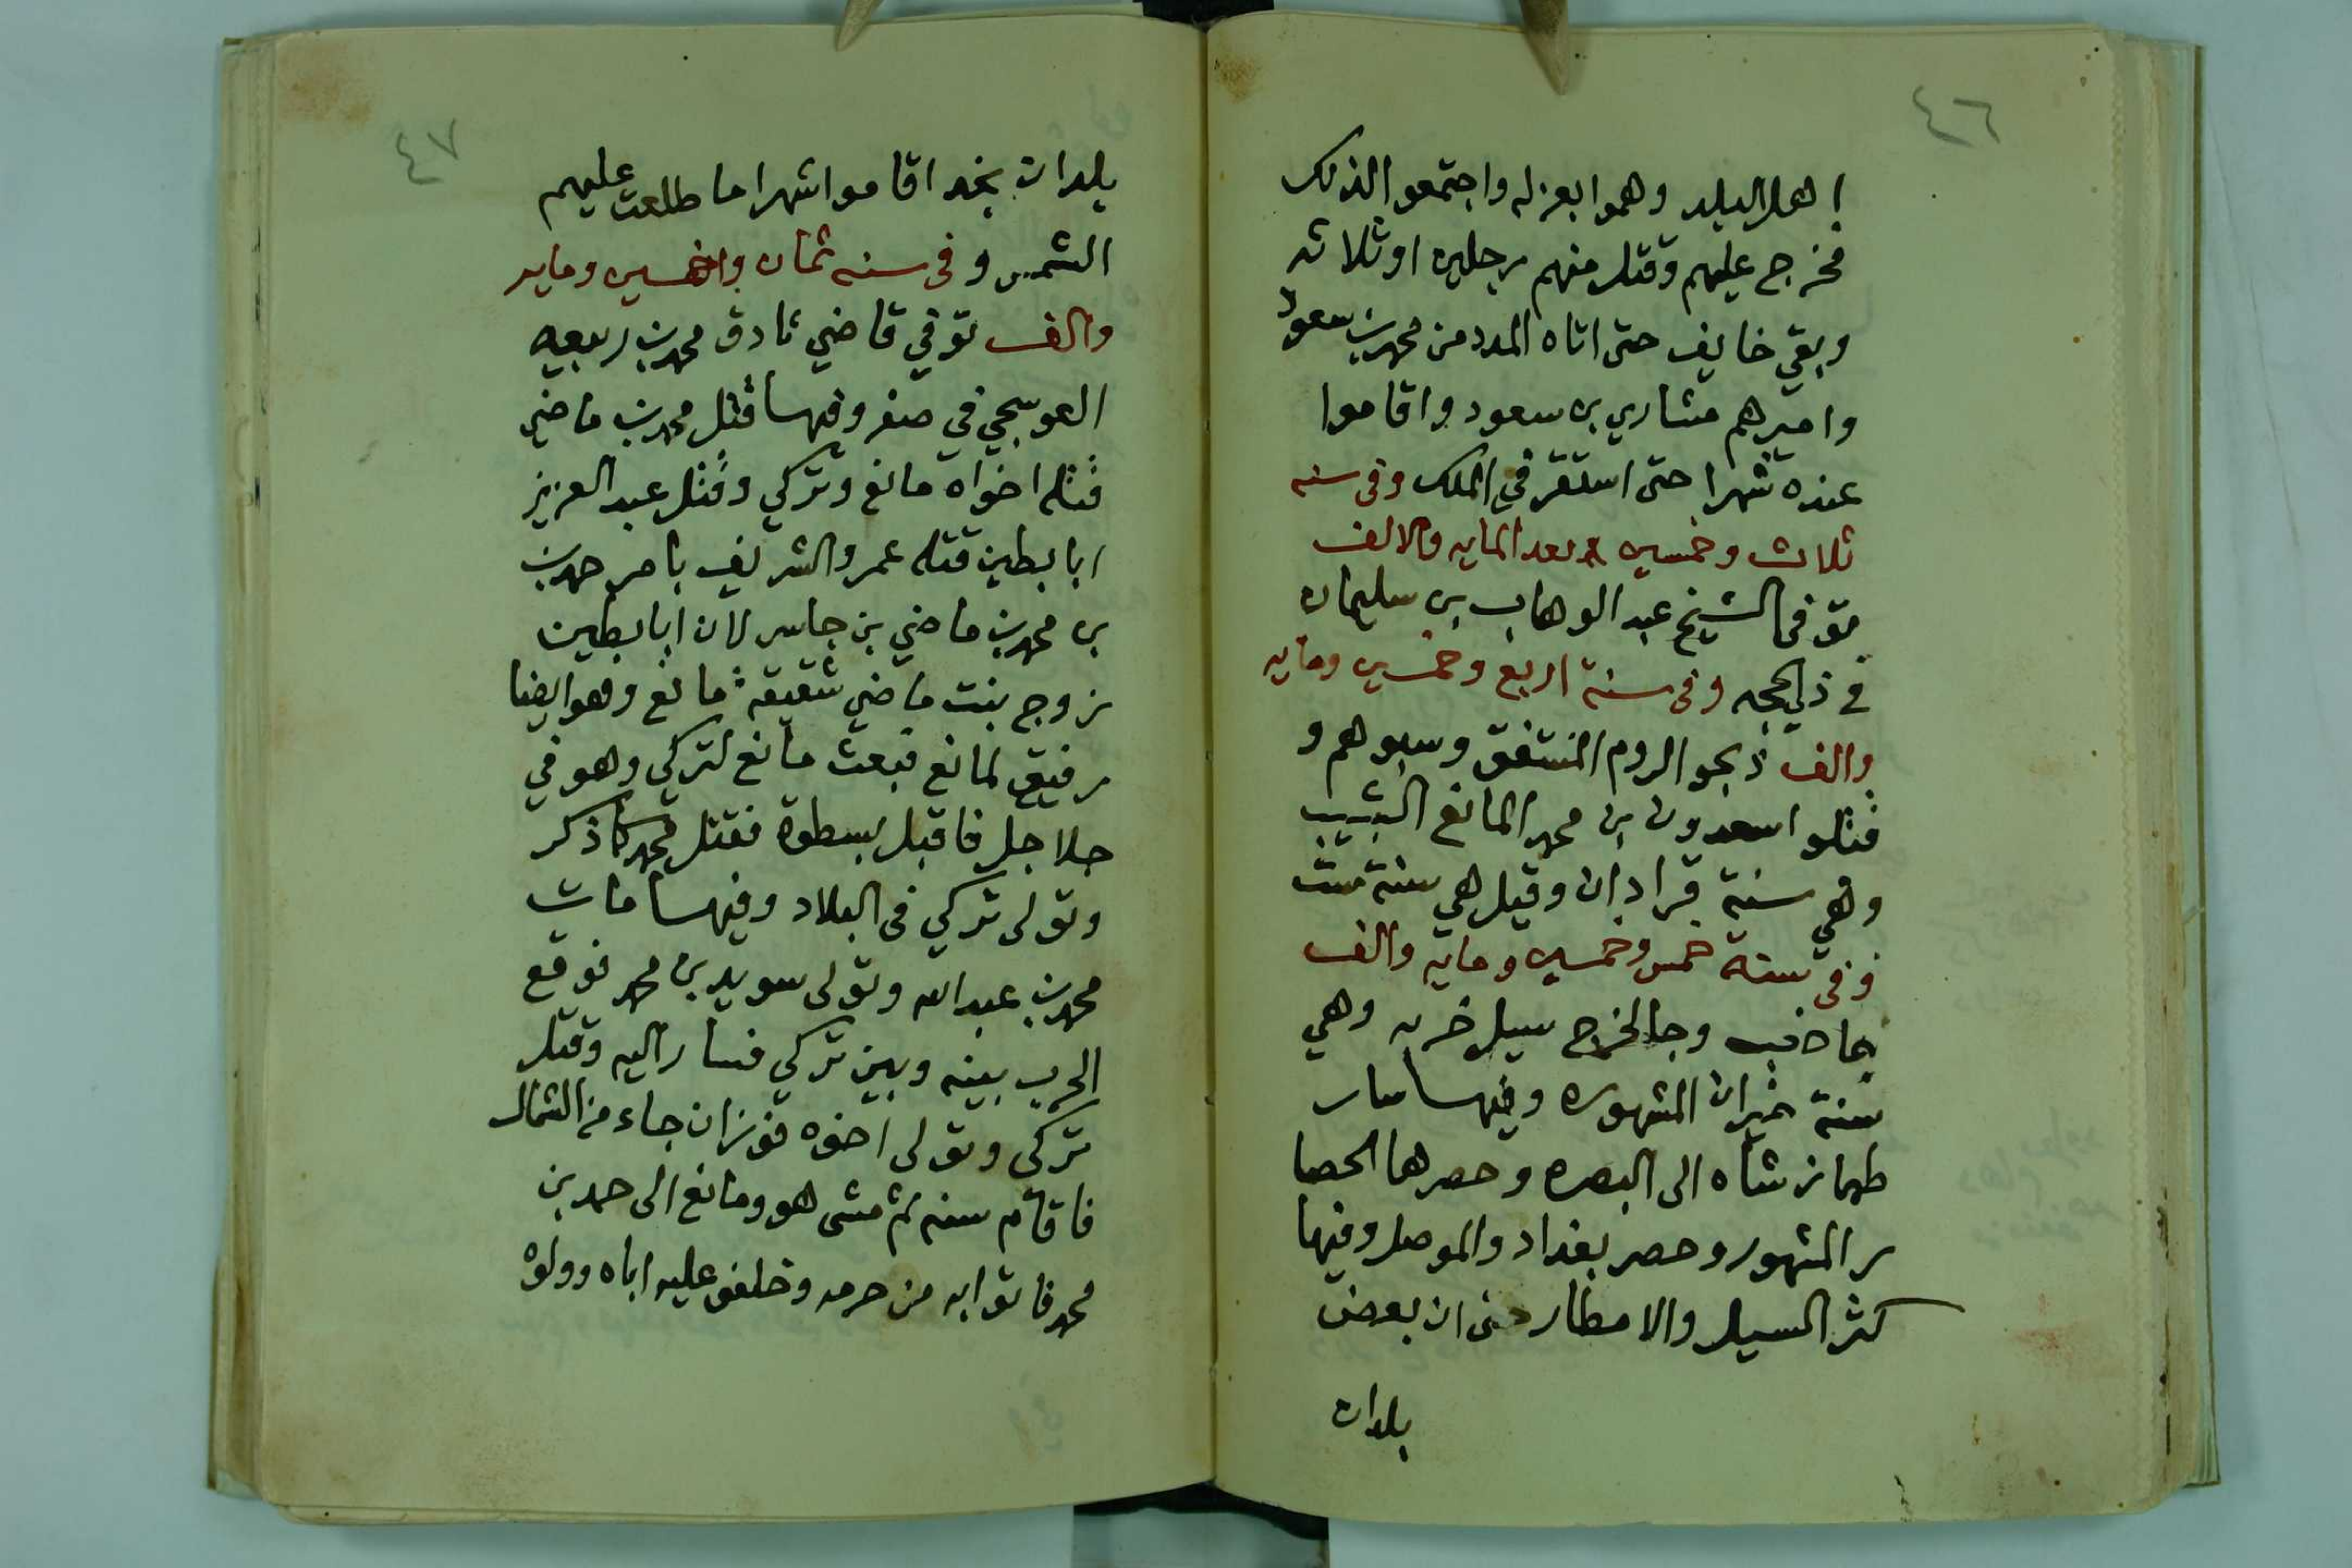 ٤٦
اهل البلد وهموا بعزله واجتمعوا لذلك
فخرج عليهم وقتل منهم رجلين او ثلاثه
وبقي خايف حتى اتاه المدد من محمد بن سعود
واميرهم مشاري بن سعود واقاموا
عنده شهرا حتى استقر في الملك وفي سنه
ثلاث وخمسين بعد المايه والالف
توفي الشيخ عبد الوهاب بن سليمان
في ذي الحجه وفي سنة اربع وخمسين ومايه
والف ذبحو الروم المنتفق وسبوهم و
قتلوا سعدون بن محمد المانع الشبيب
وهي سنة قرادان وقيل هي سنة ست
وفي سنة خمس وخمسين ومايه والف
وجا الخرج سيل خربه وهي
سنة خيران المشهوره وفيها سار
طهماز شاه الى البصره وحصرها الحصا
ر المشهور وحصر بغداد والموصل وفيها
كثر السيل والامطار حتى ان بعض
بلدان
٤٧
بلدان نجد اقاموا شهرا ما طلعت عليهم
الشمس وفي سنه ثمان وخمسين ومايه
والف توفي قاضي ثادق محمد بن ربيعه
العوسجي في صفر وفيها قتل محمد بن ماضي
قتله اخواه مانع وتركي وقتل عبد العزيز
ابا بطين قتله عمر والشريف بامر حمد بن
بن محمد بن ماضي بن جاسر لان ابا بطين
زوج بنت ماضي شقيقة مانع وهو ايضا
رفيق لمانع فبعث مانع لتركي وهو في
جلاجل فاقبل بسطوة فقتل محمد كما ذكر
وتولى تركي في البلاد وفيها مات
محمد بن عبد الله وتولى سويد بن محمد فوقع
الحرب بينه وبين تركي فسار اليه وقتل
تركي وتولى اخوه فوزان جاء من الشمال
فاقام سنه ثم مشى هو ومانع الى حمد بن
محمد فاتوا به من حرمه وخلفو عليه اباه وولوه